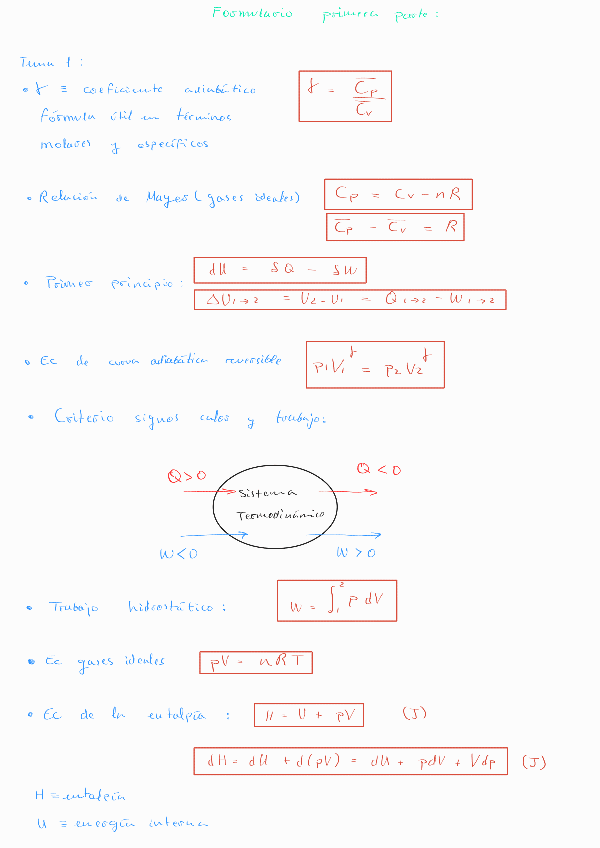 Formulario primera parte:
Tema 1:
• γ ≡ coeficiente adiabático
γ = C̅p / C̅v
fórmula útil en términos
molares y específicos
• Relación de Mayer (gases ideales)
Cp = Cv - nR
C̅p - C̅v = R
• Primer principio:
dU = δQ - δW
ΔU1→2 = U2 - U1 = Q1→2 - W1→2
• Ec de curva adiabática reversible
p1V1^γ = p2V2^γ
• Criterio signos calor y trabajo:
Q>0
Q<0
Sistema
Termodinámico
W<0
W>0
• Trabajo hidrostático:
W = ∫₁² p dV
• Ec gases ideales
pV = nRT
• Ec de la entalpía :
H = U + pV
(J)
dH = dU + d(pV) = dU + pdV + Vdp
(J)
H = entalpía
U ≡ energía interna